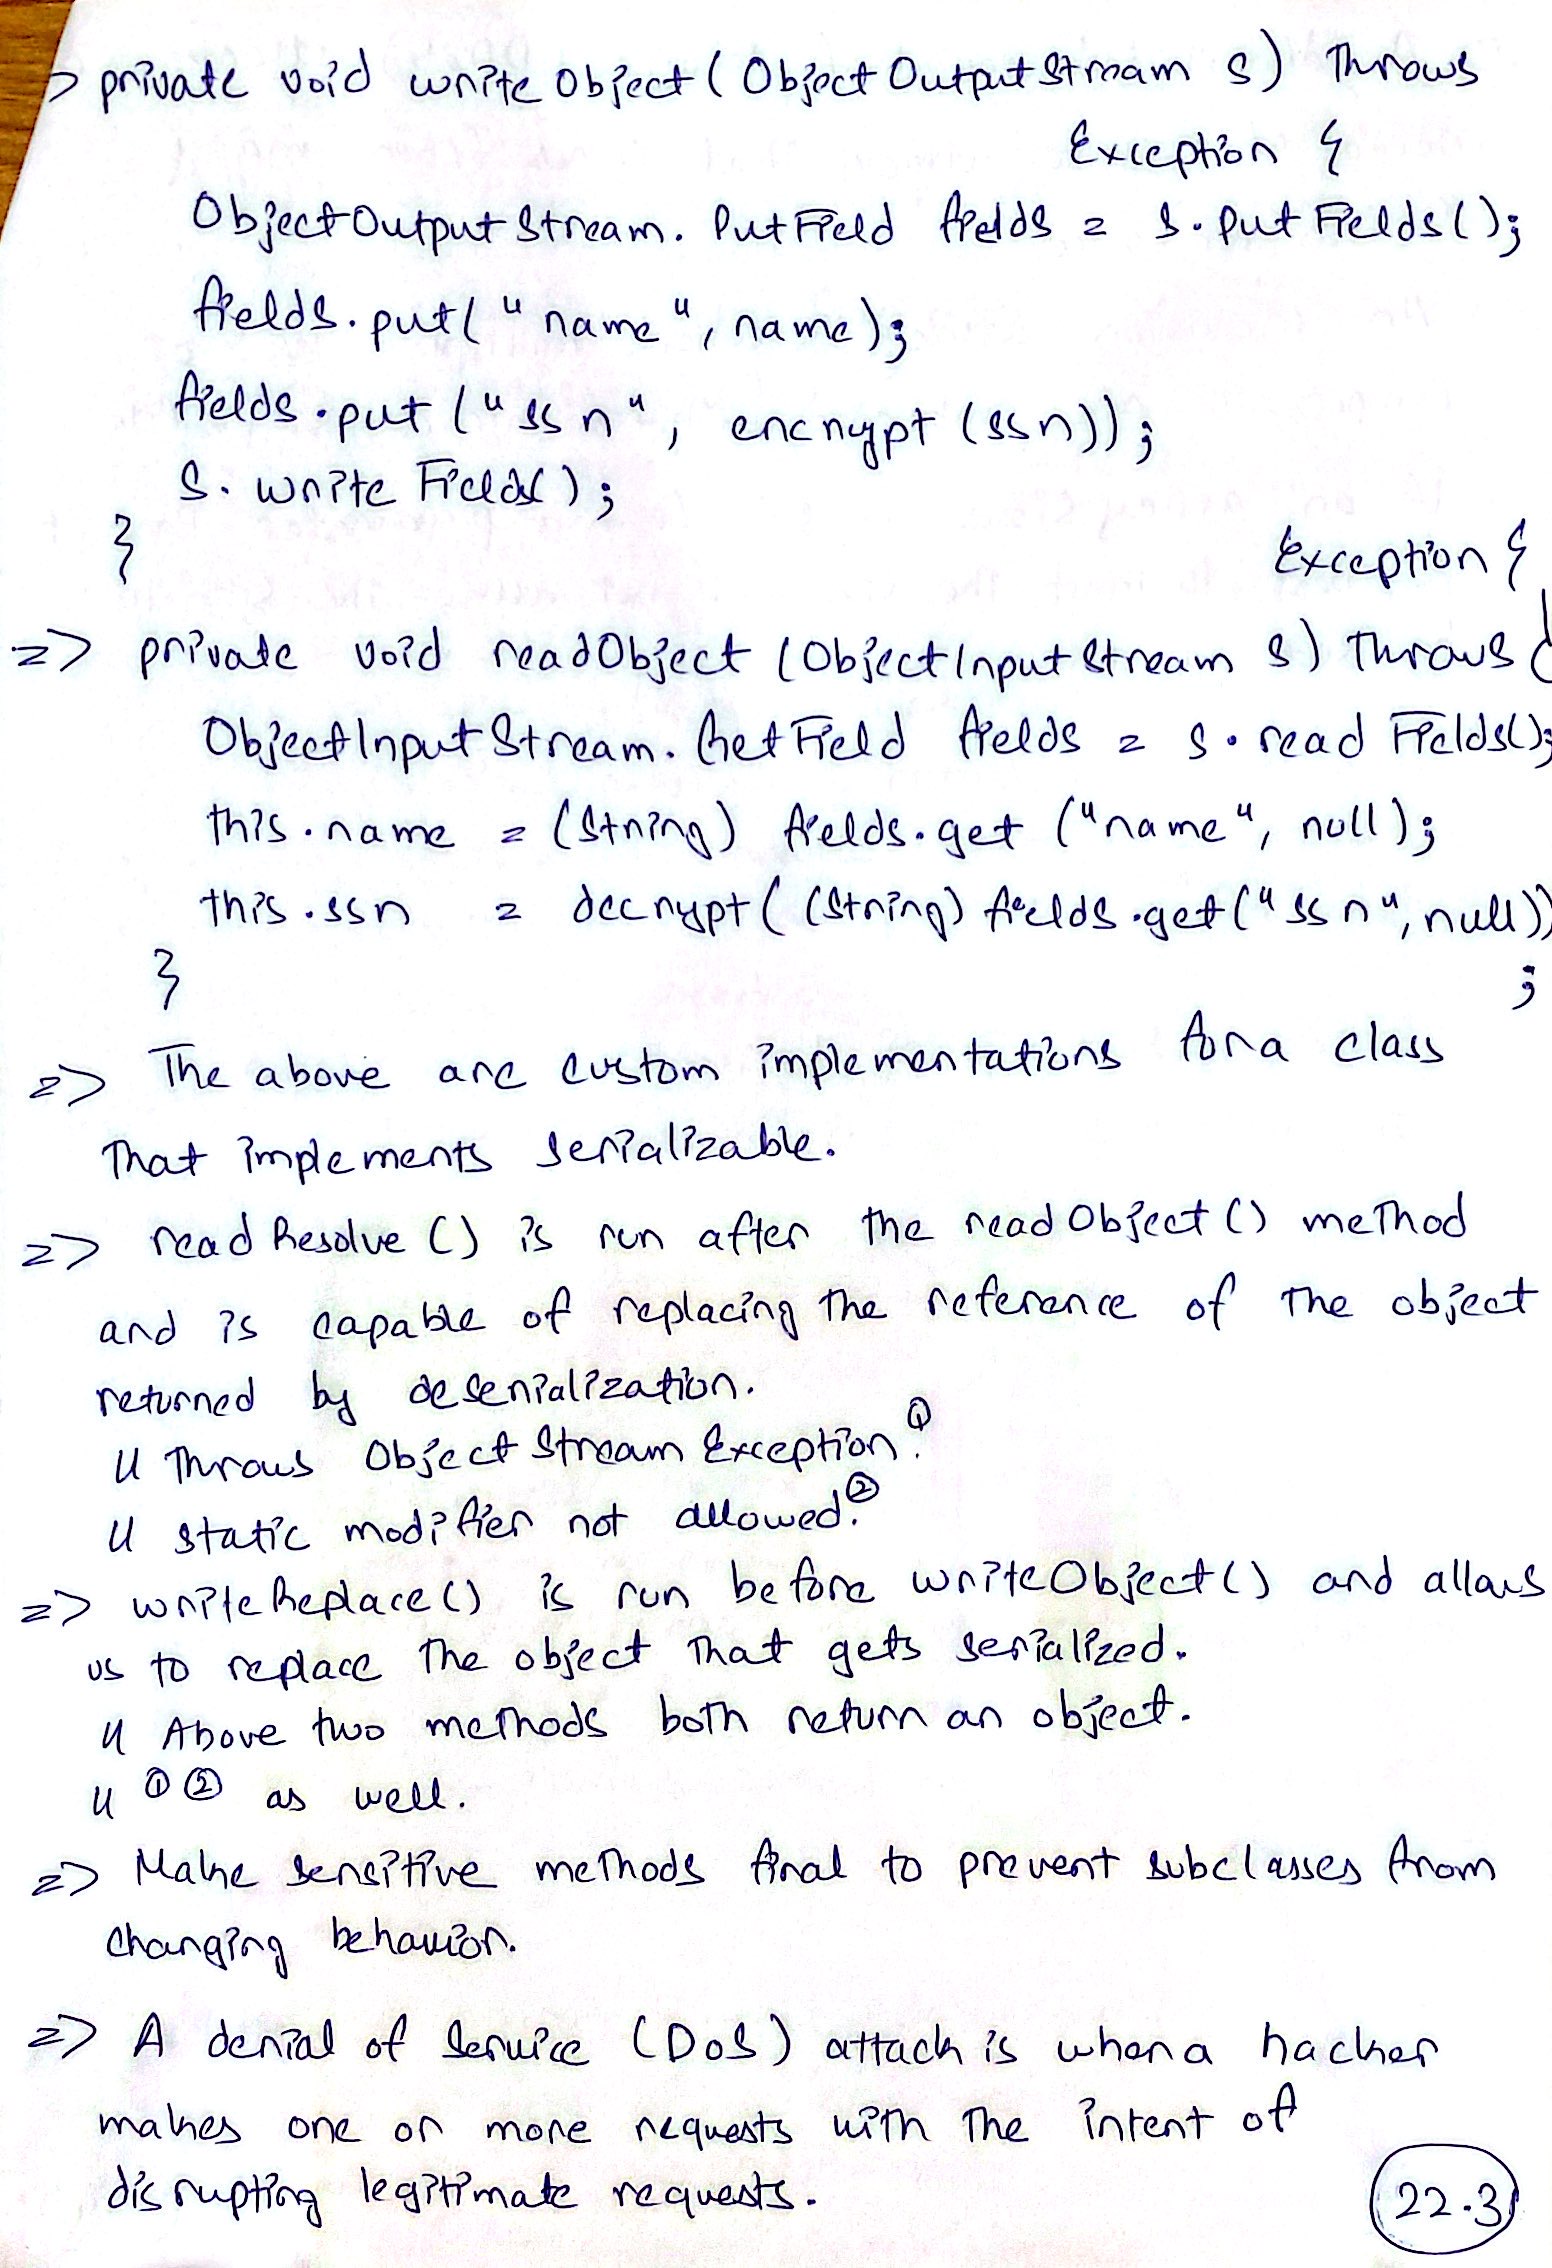 => private void writeObject(ObjectOutputStream s) throws
Exception {
ObjectOutputStream.PutField fields = s.putFields();
fields.put("name", name);
fields.put("ssn", encrypt(ssn));
s.writeFields();
}
Exception {
=> private void readObject(ObjectInputStream s) throws
ObjectInputStream.GetField fields = s.readFields();
this.name = (String) fields.get("name", null);
this.ssn = decrypt((String) fields.get("ssn", null))
}
;
=> The above are custom implementations for a class
that implements serializable.
=> readResolve() is run after the readObject() method
and is capable of replacing the reference of the object
returned by deserialization.
" throws ObjectStreamException.①
" static modifier not allowed.②
=> writeReplace() is run before writeObject() and allows
us to replace the object that gets serialized.
" Above two methods both return an object.
" ① ② as well.
=> Make sensitive methods final to prevent subclasses from
changing behavior.
=> A denial of service (DoS) attack is when a hacker
makes one or more requests with the intent of
disrupting legitimate requests.
22.3